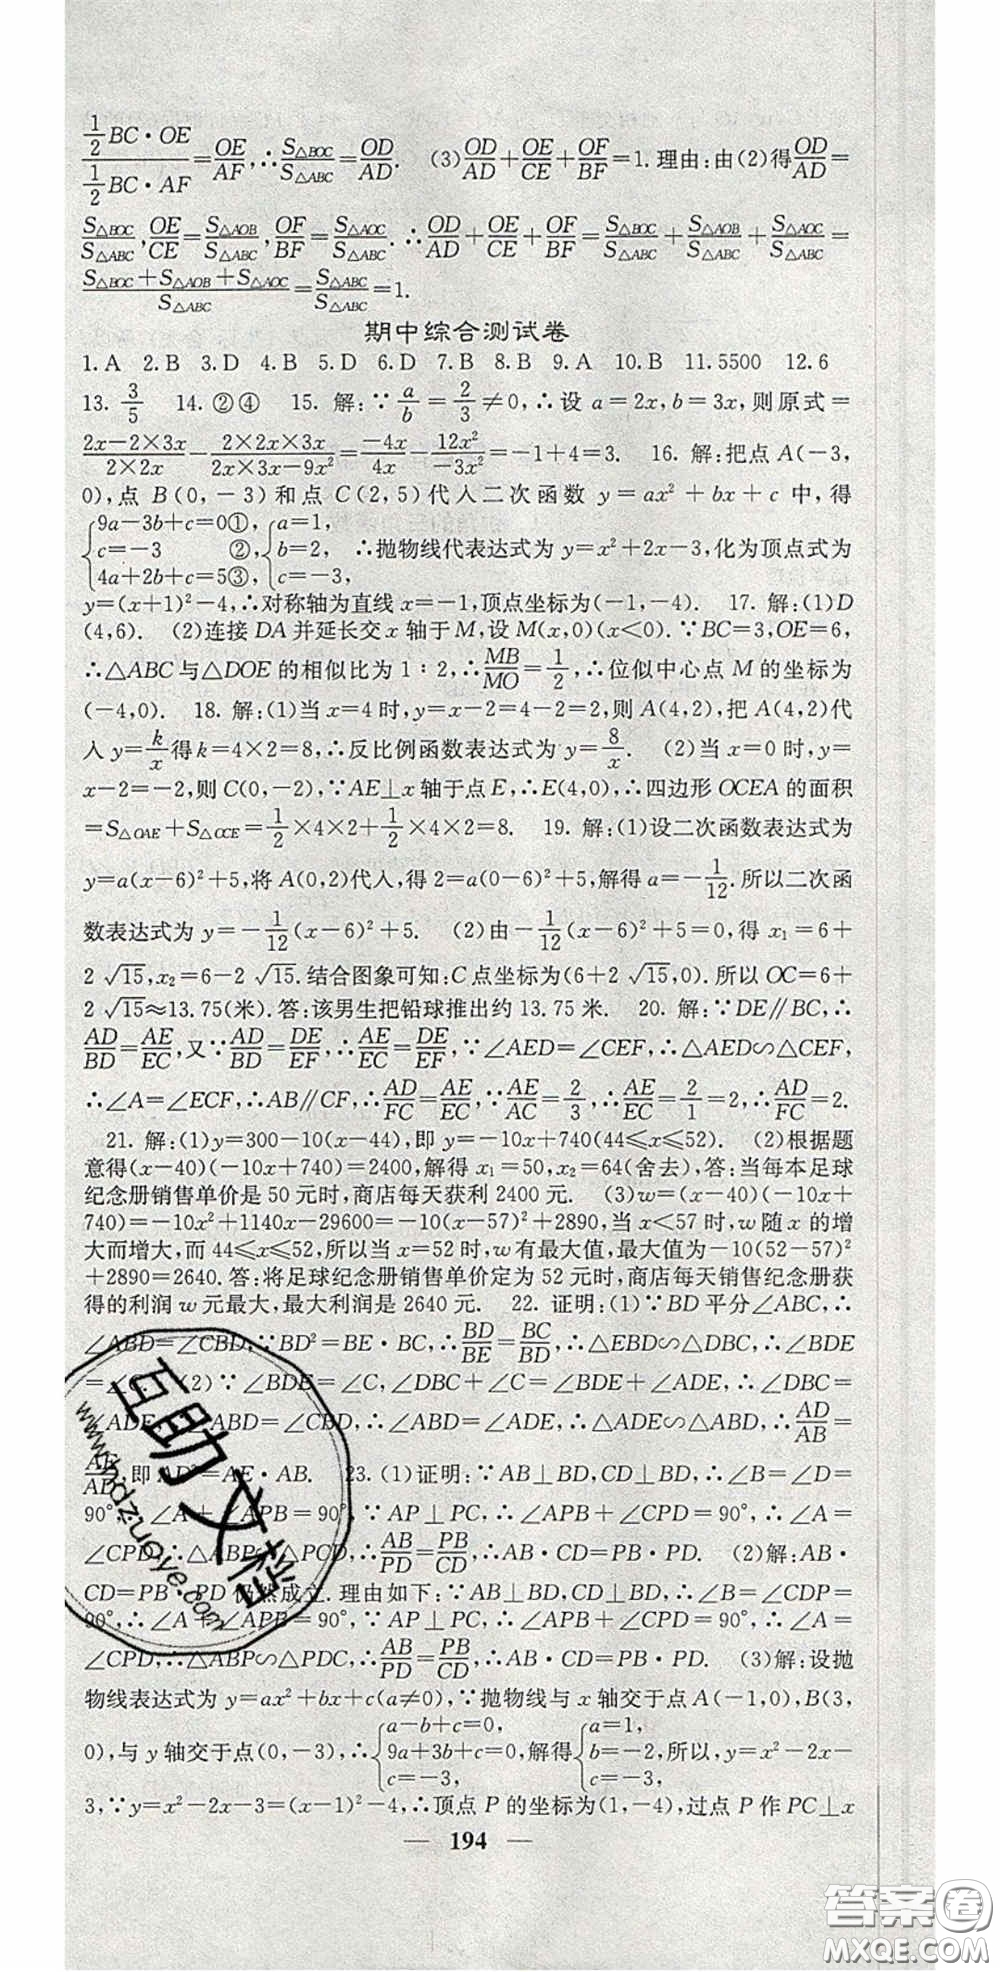 ½BC·OE/½BC·AF=OE/AF,∴S△BOC/S△ABC=OD/AD. (3)OD/AD+OE/CE+OF/BF=1.理由:由(2)得OD/AD=
S△BOC/S△ABC,OE/CE=S△AOB/S△ABC,OF/BF=S△AOC/S△ABC.∴OD/AD+OE/CE+OF/BF=S△BOC/S△ABC+S△AOB/S△ABC+S△AOC/S△ABC=
(S△BOC+S△AOB+S△AOC)/S△ABC=S△ABC/S△ABC=1.
期中综合测试卷
1.A 2.B 3.D 4.B 5.D 6.D 7.B 8.B 9.A 10.B 11.5500 12.6
13. 3/5 14.②④ 15. 解:∵a/b=2/3≠0,∴设 a=2x,b=3x,则原式=
(2x-2×3x)/(2×2x)-(2×2x×3x)/(2x×3x-9x²)=-4x/4x-12x²/-3x²=-1+4=3. 16. 解:把点A(-3,
0),点 B(0,-3)和点 C(2,5)代入二次函数 y=ax²+bx+c 中,得
{9a-3b+c=0①, {a=1,
c=-3 ②, b=2, ∴抛物线代表达式为 y=x²+2x-3,化为顶点式为
4a+2b+c=5③, c=-3,
y=(x+1)²-4,∴对称轴为直线 x=-1,顶点坐标为(-1,-4). 17. 解:(1)D
(4,6). (2)连接 DA 并延长交 x 轴于 M,设 M(x,0)(x<0).∵BC=3,OE=6,
∴△ABC与△DOE 的相似比为 1∶2,∴MB/MO=1/2,∴位似中心点 M 的坐标为
(-4,0). 18. 解:(1)当 x=4 时,y=x-2=4-2=2,则 A(4,2),把 A(4,2)代
入 y=k/x得 k=4×2=8,∴反比例函数表达式为 y=8/x. (2)当 x=0 时,y=
x-2=-2,则 C(0,-2),∵AE⊥x 轴于点 E,∴E(4,0),∴四边形 OCEA 的面积
=S△OAE+S△OCE=1/2×4×2+1/2×4×2=8. 19. 解:(1)设二次函数表达式为
y=a(x-6)²+5,将 A(0,2)代入,得 2=a(0-6)²+5,解得 a=-1/12.所以二次函
数表达式为 y=-1/12(x-6)²+5. (2)由-1/12(x-6)²+5=0,得 x₁=6+
2√15,x₂=6-2√15.结合图象可知:C 点坐标为(6+2√15,0).所以 OC=6+
2√15≈13.75(米).答:该男生把铅球推出约 13.75 米. 20. 解:∵DE∥BC,∴
AD/BD=AE/EC,又∵AD/BD=DE/EF,∴AE/EC=DE/EF,∵∠AED=∠CEF,∴△AED∽△CEF,
∴∠A=∠ECF,∴AB∥CF,∴AD/FC=AE/EC,∵AE/AC=2/3,∴AE/EC=2/1=2,∴AD/FC=2.
21. 解:(1)y=300-10(x-44),即 y=-10x+740(44≤x≤52). (2)根据题
意得(x-40)(-10x+740)=2400,解得 x₁=50,x₂=64(舍去),答:当每本足球
纪念册销售单价是 50 元时,商店每天获利 2400 元. (3)w=(x-40)(-10x+
740)=-10x²+1140x-29600=-10(x-57)²+2890,当 x<57 时,w 随 x 的增
大而增大,而 44≤x≤52,所以当 x=52 时,w 有最大值,最大值为-10(52-57)²
+2890=2640.答:将足球纪念册销售单价定为 52 元时,商店每天销售纪念册获
得的利润 w 元最大,最大利润是 2640 元. 22. 证明:(1)∵BD 平分∠ABC,∴
∠ABD=∠CBD,∵BD²=BE·BC,∴BD/BE=BC/BD,∴△EBD∽△DBC,∴∠BDE
=∠C. (2)∵∠BDE=∠C,∠DBC+∠C=∠BDE+∠ADE,∴∠DBC=
∠ADE,∵∠ABD=∠CBD,∴∠ABD=∠ADE,∴△ADE∽△ABD,∴AD/AB=
AE/AD,即 AD²=AE·AB. 23. (1)证明:∵AB⊥BD,CD⊥BD,∴∠B=∠D=
90°,∴∠A+∠APB=90°,∵AP⊥PC,∴∠APB+∠CPD=90°,∴∠A=
∠CPD,∴△ABP∽△PCD,∴AB/PD=PB/CD,∴AB·CD=PB·PD. (2)解:AB·
CD=PB·PD 仍然成立.理由如下:∵AB⊥BD,CD⊥BD,∴∠B=∠CDP=
90°,∴∠A+∠APB=90°,∵AP⊥PC,∴∠APB+∠CPD=90°,∴∠A=
∠CPD,∴△ABP∽△PDC,∴AB/PD=PB/CD,∴AB·CD=PB·PD. (3)解:设抛
物线表达式为 y=ax²+bx+c(a≠0),∵抛物线与 x 轴交于点 A(-1,0),B(3,
{a-b+c=0, {a=1,
0),与 y 轴交于点(0,-3),∴ 9a+3b+c=0,解得 b=-2,所以,y=x²-2x-
c=-3, c=-3,
3,∵y=x²-2x-3=(x-1)²-4,∴顶点 P 的坐标为(1,-4),过点 P 作 PC⊥x
— 194 —
互助文档
www.hdzuoye.com
答案卷
MXQE.COM